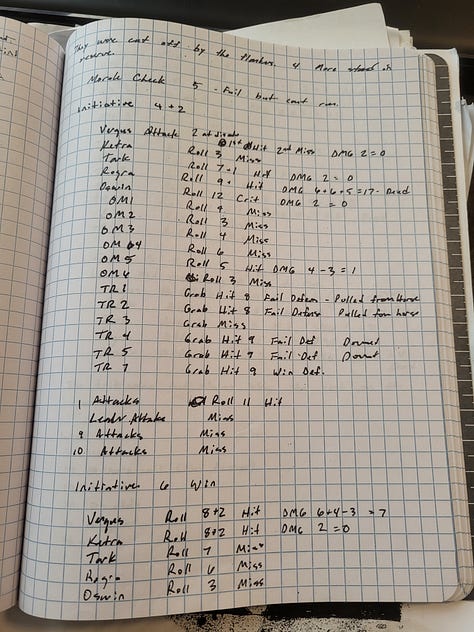 They were cut off by the flankers. 4 More stood in
reserve.
Morale Check 5 - Fail but cant run.
Initiative 4+2
Vergus Attack 2 1st Hit 2nd Miss DMG 2=0
Ketra Roll 3 Miss
Tark Roll 7-1 Hit DMG 2=0
Rogra Roll 9+ Hit DMG 6+6+5=17 - Dead
Oswin Roll 12 Crit DMG 2=0
OM1 Roll 4 Miss
OM2 Roll 3 Miss
OM3 Roll 4 Miss
OM 4 Roll 6 Miss
OM 5 Roll 5 Hit DMG 4-3=1
OM 6 Roll 3 Miss
TR 1 Grab Hit 8 Fail Defens - Pulled from horse
TR 2 Grab Hit 8 Fail Defens Pulled from horse
TR 3 Grab Miss
TR 4 Grab Hit 9 Fail Def Downed
TR 5 Grab Hit 9 Fail Def Downed
TR 7 Grab Hit 9 Win Def.
1 Attacks Roll 11 Hit
Leader Attake Miss
9 Attacks Miss
10 Attacks Miss
Initiative 6 Win
Vergus Roll 8+2 Hit DMG 6+4-3=7
Ketra Roll 8+2 Hit DMG 2=0
Tark Roll 7 Miss
Rogra Roll 6 Miss
Oswin Roll 3 Miss